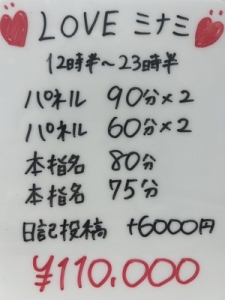 LOVE ミナミ
12時半~23時半
パネル 90分×2
パネル 60分×2
本指名 80分
本指名 75分
日記投稿 +6000円
¥110.000